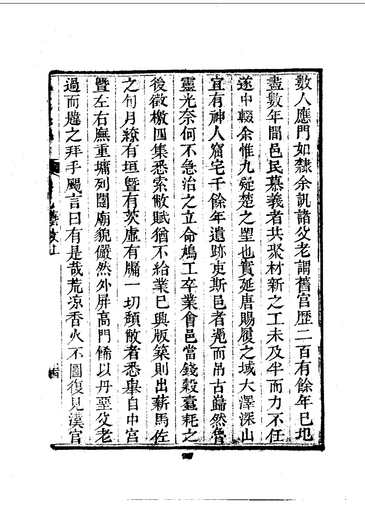 數人應門如隸余訊諸父老謂舊宮歷二百有餘年已圮
盡數年間邑民慕義者共聚材新之工未及半而力不任
遂中輟余惟九疑楚之望也實延唐賜履之域大澤深山
宜有神人窟宅千餘年遺跡吏斯邑者過而吊古巋然魯
靈光奈何不急治之立命鳩工卒業會邑當錢穀蠧耗之
後徵檄四集悉索敝賦猶不給業已興版築則出薪馬佐
之旬月繚有垣暨有茨虛有牖一切頹敝者悉舉自中宮
暨左右廡重墉列闥廟貌儼然外屏高門餙以丹堊父老
過而趯之拜手颺言曰有是哉荒凉香火不圖復見漢官